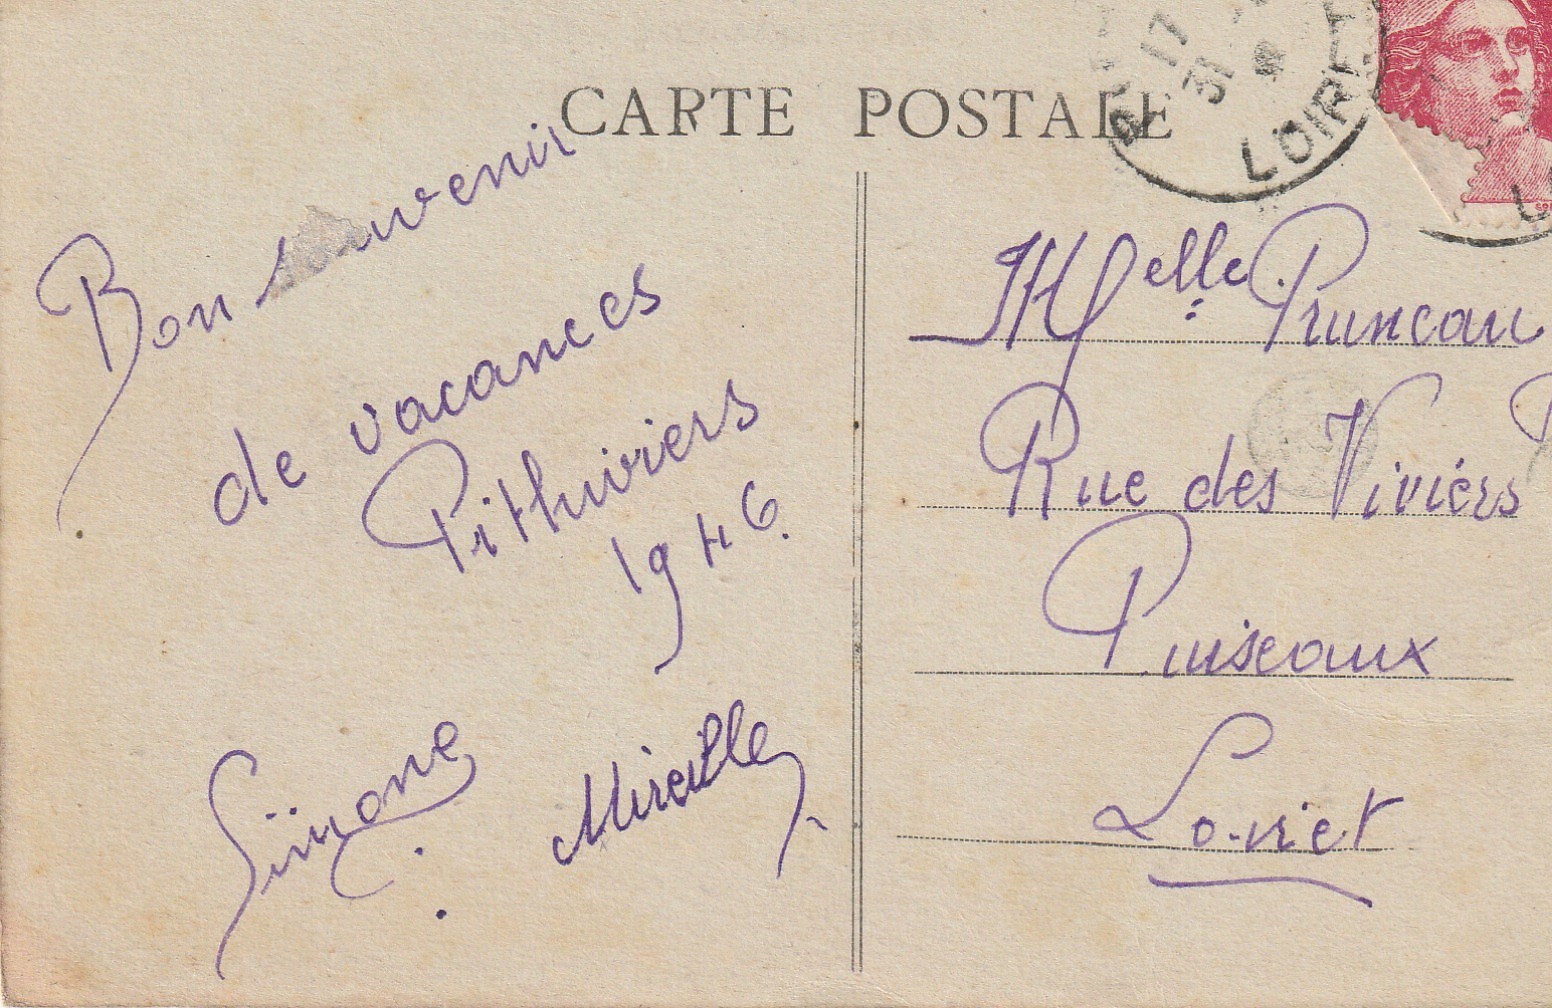 CARTE POSTALE
17
31
LOIRET
Bon souvenir
de vacances
Pithiviers
1946.
Simone
Mireille
Melle Pruneau
Rue des Viviers
Puiseaux
Loiret